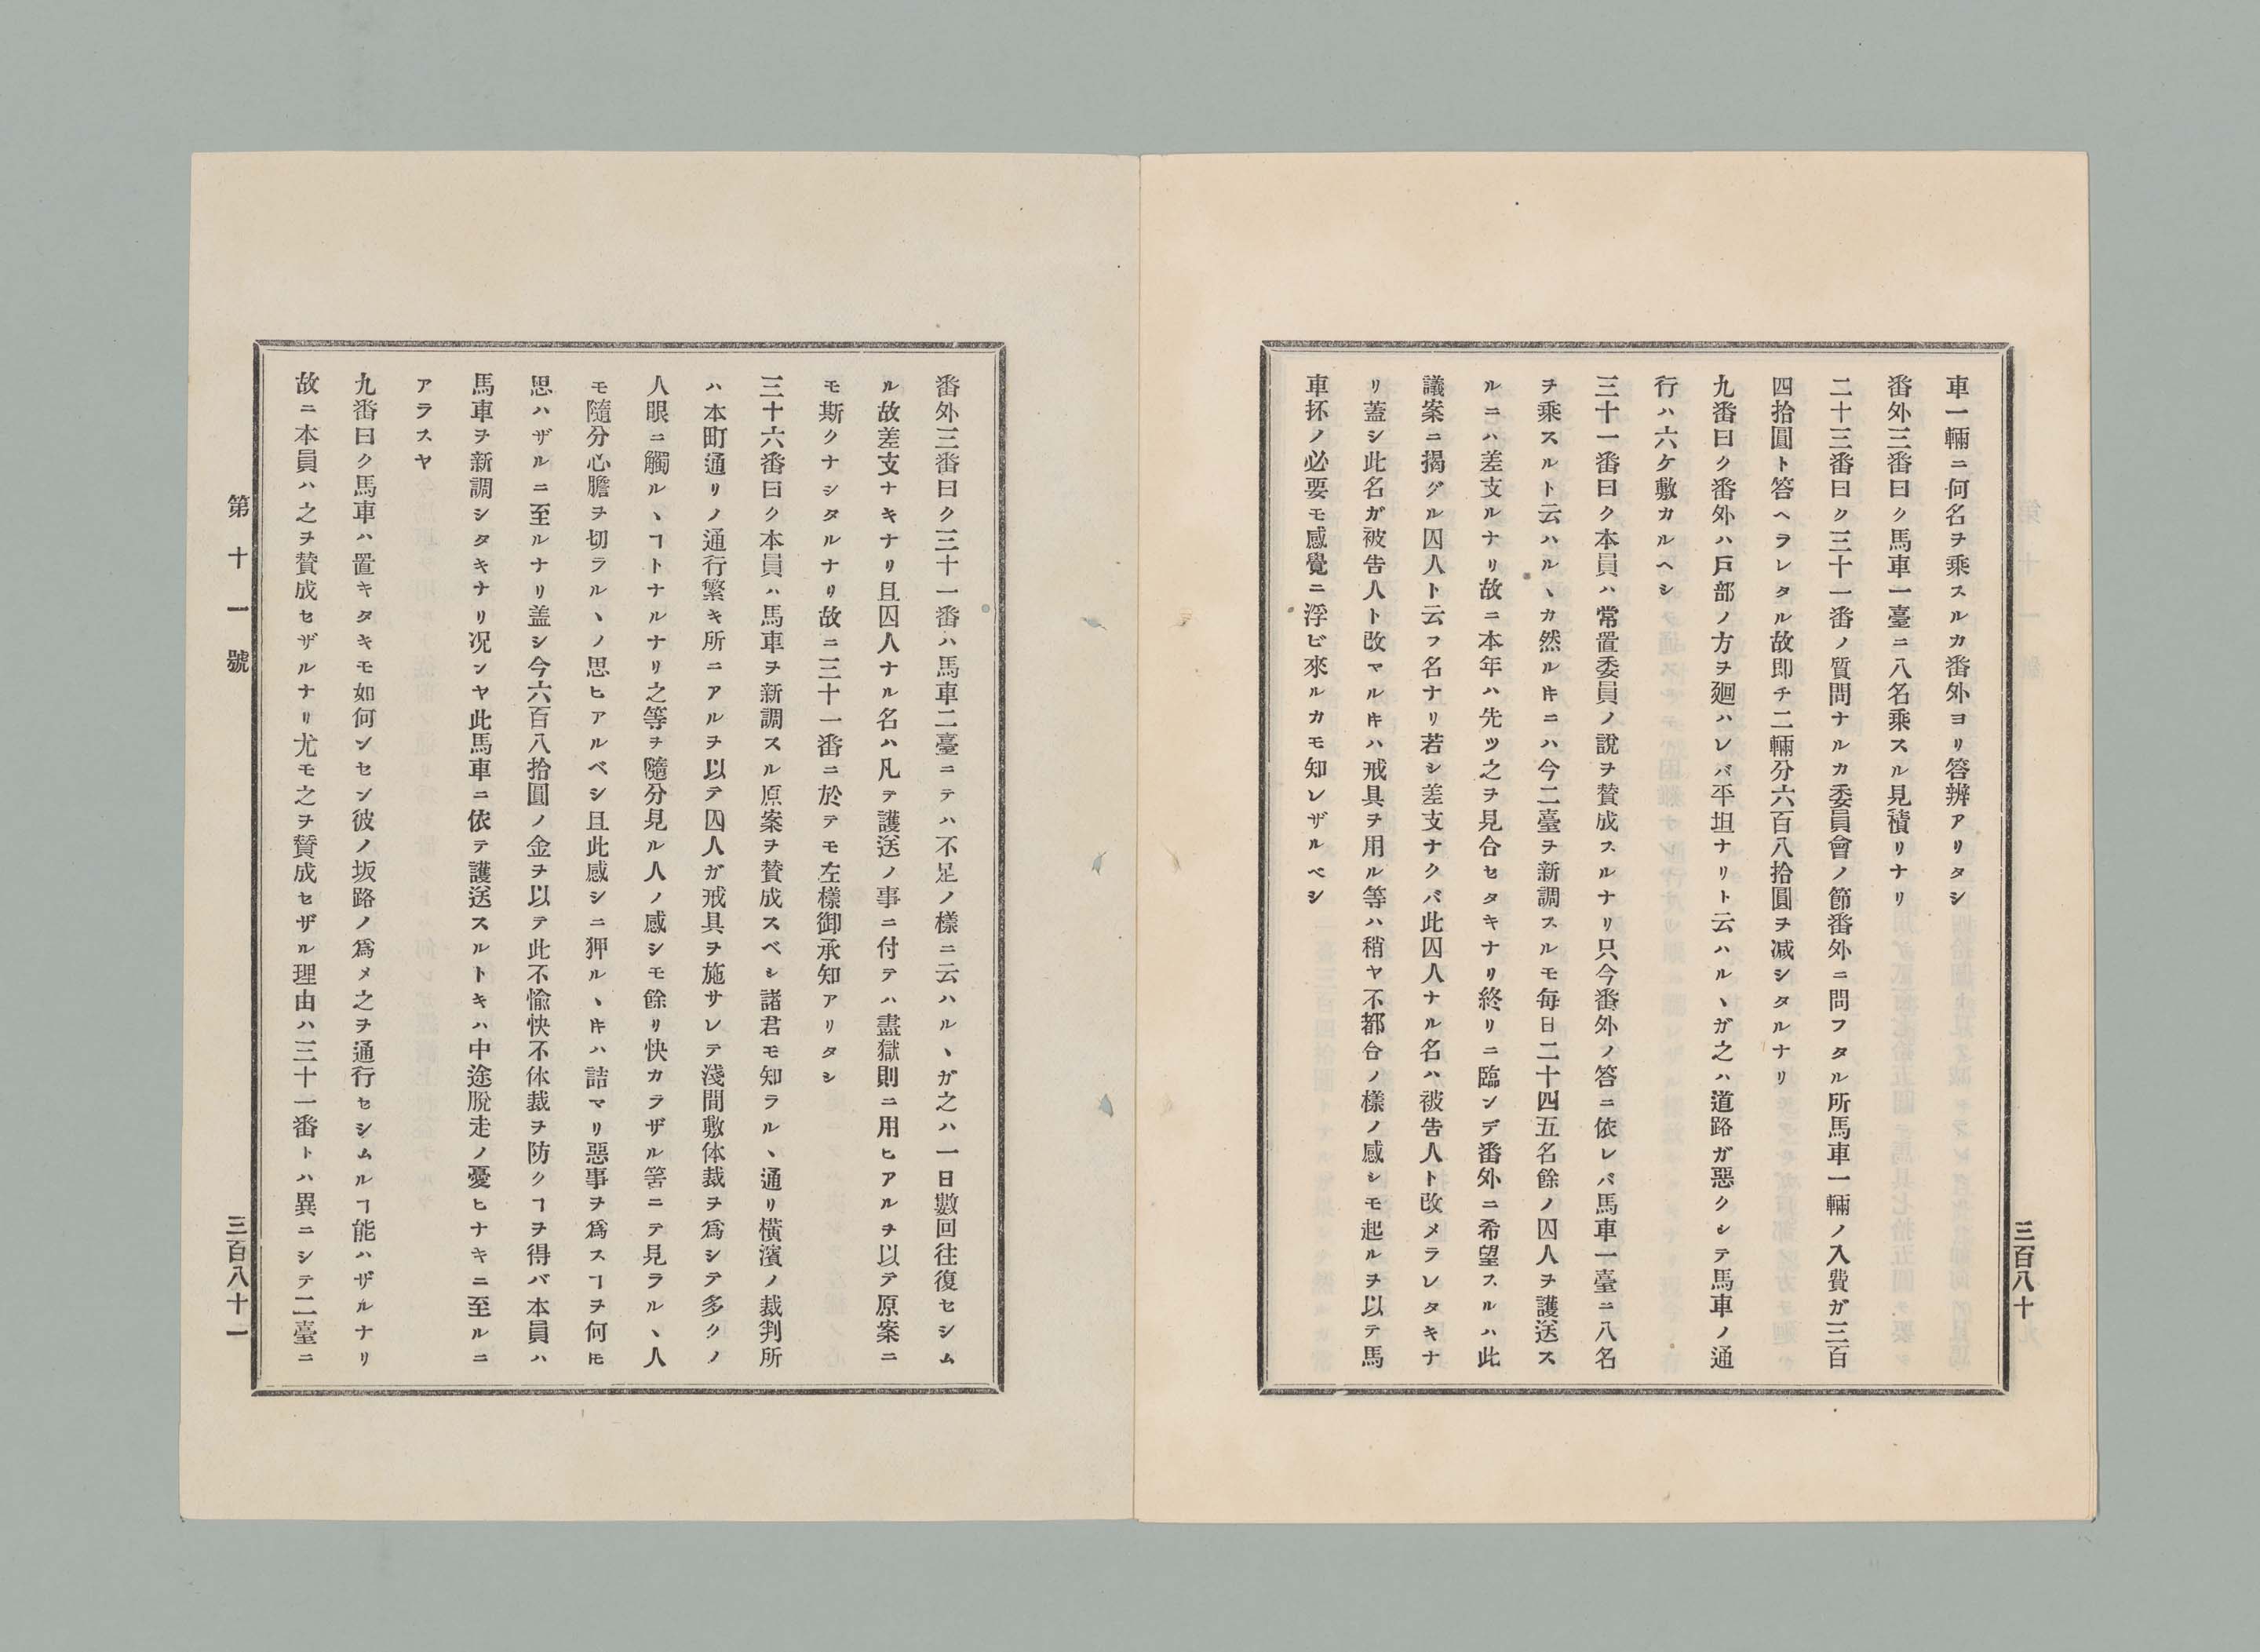 三百八十
車一輛ニ何名ヲ乘スルカ番外ヨリ答辨アリタシ
番外三番曰ク馬車一臺ニ八名乘スル見積リナリ
二十三番曰ク三十一番ノ質問ナルカ委員會ノ節番外ニ問フタル所馬車一輛ノ入費ガ三百
四拾圓ト答ヘラレタル故即チ二輛分六百八拾圓ヲ减シタルナリ
九番曰ク番外ハ戸部ノ方ヲ廻ハレバ平坦ナリト云ハルヽガ之ハ道路ガ惡クシテ馬車ノ通
行ハ六ケ敷カルヘシ
三十一番曰ク本員ハ常置委員ノ說ヲ賛成スルナリ只今番外ノ答ニ依レバ馬車一臺ニ八名
ヲ乘スルト云ハルヽカ然ルキニハ今二臺ヲ新調スルモ毎日二十四五名餘ノ囚人ヲ護送ス
ルニハ差支ルナリ故ニ本年ハ先ツ之ヲ見合セタキナリ終リニ臨ンデ番外ニ希望スルハ此
議案ニ揭グル囚人ト云フ名ナリ若シ差支ナクバ此囚人ナル名ハ被告人ト改メラレタキナ
リ蓋シ此名ガ被告人ト改マルキハ戒具ヲ用ル等ハ稍ヤ不都合ノ樣ノ感シモ起ルヲ以テ馬
車抔ノ必要モ感覺ニ浮ビ來ルカモ知レザルベシ
番外三番曰ク三十一番ハ馬車二臺ニテハ不足ノ樣ニ云ハルヽガ之ハ一日數回往復セシム
ル故差支ナキナリ且囚人ナル名ハ凡テ護送ノ事ニ付テハ盡獄則ニ用ヒアルヲ以テ原案ニ
モ斯クナシタルナリ故ニ三十一番ニ於テモ左樣御承知アリタシ
三十六番曰ク本員ハ馬車ヲ新調スル原案ヲ賛成スベシ諸君モ知ラルヽ通リ橫濱ノ裁判所
ハ本町通リノ通行繁キ所ニアルヲ以テ囚人ガ戒具ヲ施サレテ淺間敷体裁ヲ爲シテ多クノ
人眼ニ觸ルヽヿトナルナリ之等ヲ隨分見ル人ノ感シモ餘リ快カラザル筈ニテ見ラルヽ人
モ隨分心膽ヲ切ラルヽノ思ヒアルベシ且此感シニ狎ルヽキハ詰マリ惡事ヲ爲スヿヲ何𪜈
思ハザルニ至ルナリ盖シ今六百八拾圓ノ金ヲ以テ此不愉快不体裁ヲ防クヿヲ得バ本員ハ
馬車ヲ新調シタキナリ况ンヤ此馬車ニ依テ護送スルトキハ中途脫走ノ憂ヒナキニ至ルニ
アラスヤ
九番曰ク馬車ハ置キタキモ如何ンセン彼ノ坂路ノ爲メ之ヲ通行セシムルヿ能ハザルナリ
故ニ本員ハ之ヲ賛成セザルナリ尤モ之ヲ賛成セザル理由ハ三十一番トハ異ニシテ二臺ニ
第十一號
三百八十一